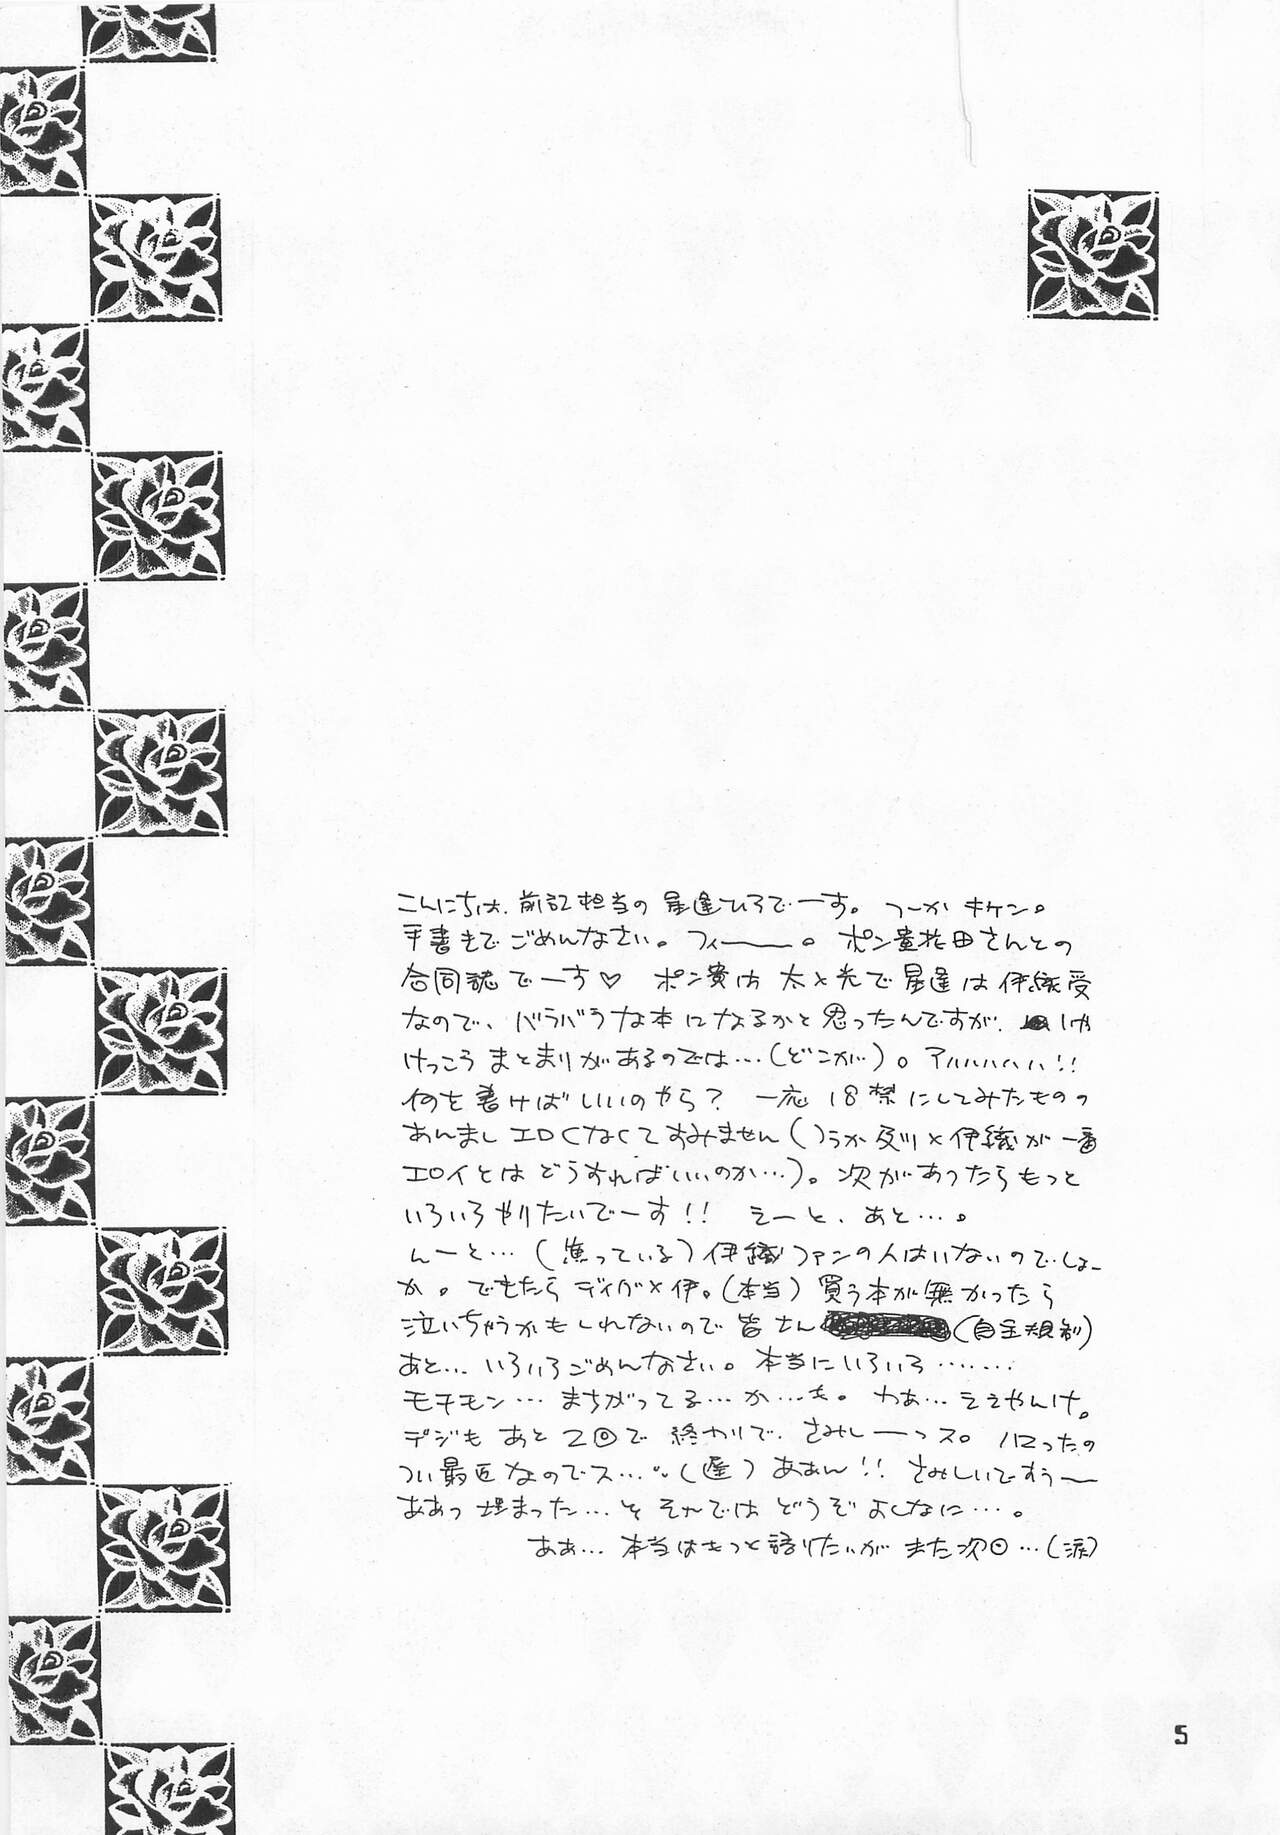 こんにちは、前記担当の星逢ひろでーす。つーかキケン。
手書きでごめんなさい。フィーー。ポン貴花田さんとの
合同誌でーす♡ ポン貴は太×光で星逢は伊織受
なので、バラバラな本になるかと思ったんですが、
けっこうまとまりがあるのでは…(どこが)。アハハハハハ!!
何を書けばいいのやら? 一応18禁にしてみたものの
あんましエロくなくてすみません(つうか及川×伊織が一番
エロイとはどうすればいいのか…)。次があったらもっと
いろいろやりたいでーす!! えーと、あと…。
んーと…(焦っている)伊織ファンの人はいないのでしょー
か。でもたらディグ×伊。(本当)買う本が無かったら
泣いちゃうかもしれないので皆さん(自主規制)
あと…いろいろごめんなさい。本当にいろいろ……
モチモン…まちがってる…か…も。わあ…ええやんけ。
デジもあと2回で終わりで、さみしーーっス。ハマったの
つい最近なのでス…(遅)ああん!! さみしいですぅー
ああっ埋まった…とそれではどうぞよしなに…。
ああ…本当はもっと語りたいがまた次回…(涙)
5